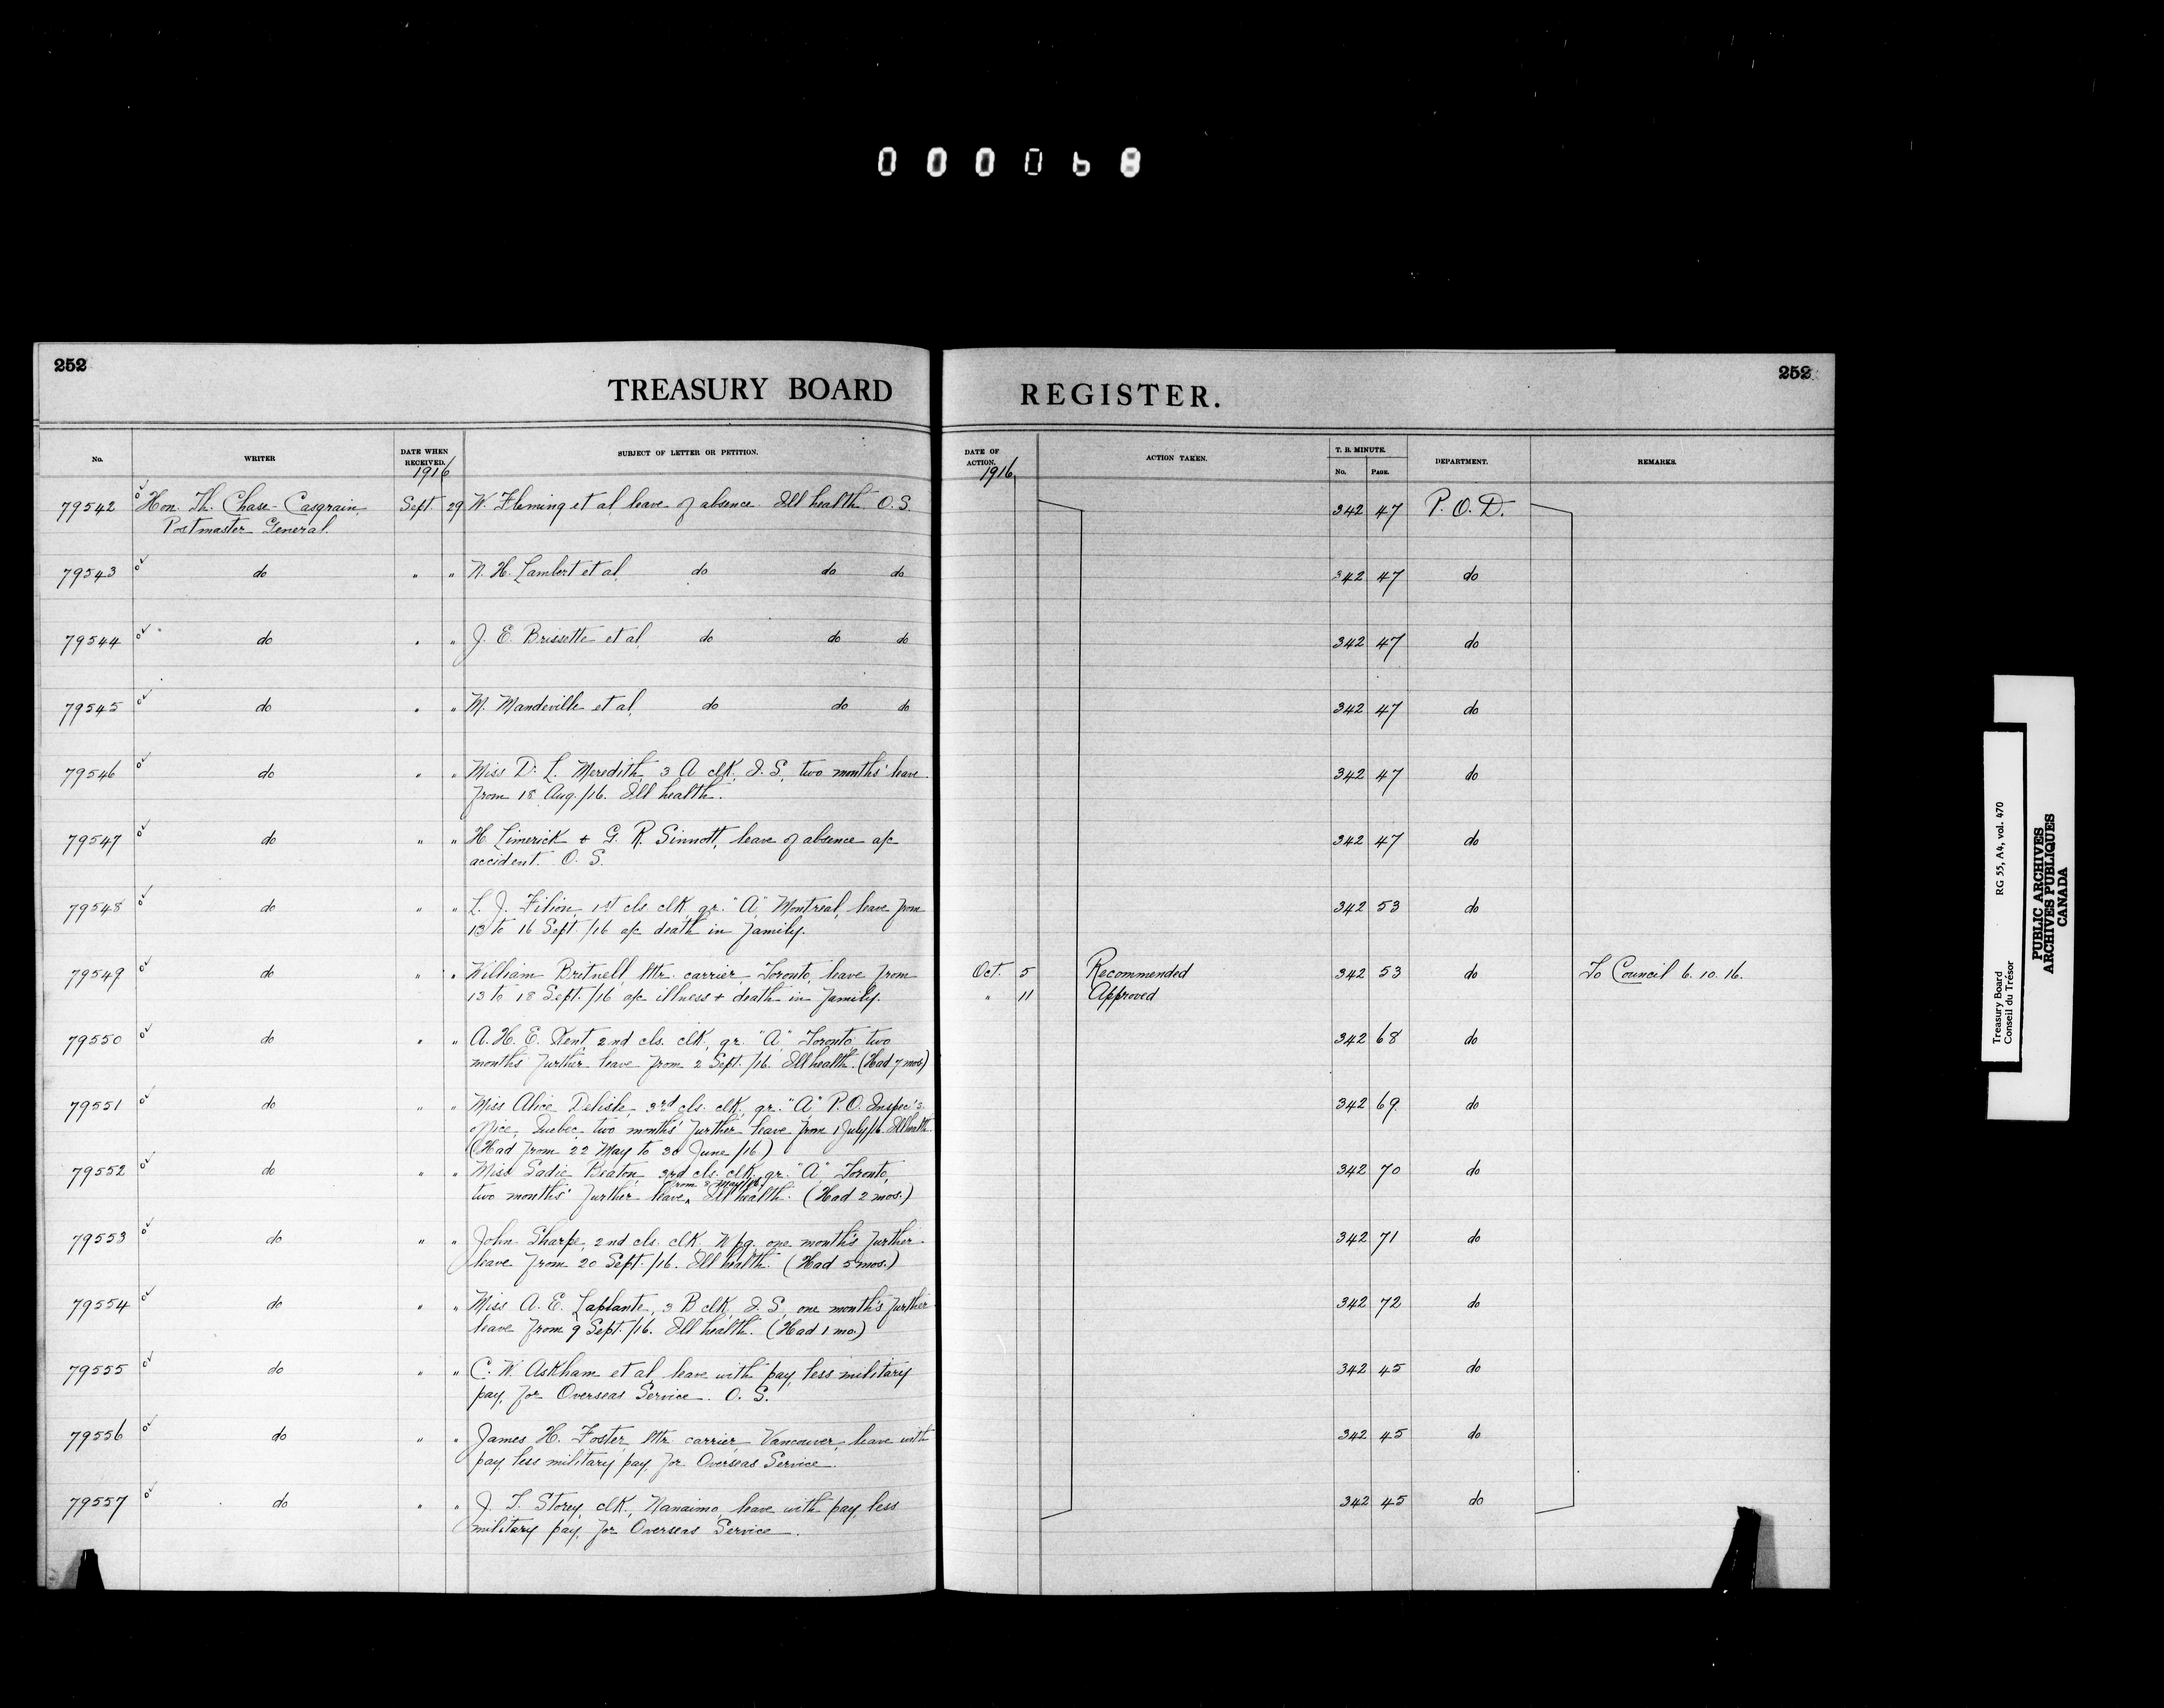 000068
252
TREASURY BOARD REGISTER.
252
No. WRITER DATE WHEN RECEIVED. SUBJECT OF LETTER OR PETITION. DATE OF ACTION. ACTION TAKEN. T. B. MINUTE. No. PAGE. DEPARTMENT. REMARKS.
1916 1916
79542 Hon. Th. Chase-Casgrain, Sept 29 W. Fleming et al leave of absence. Ill health. O.S. 342 47 P.O.D.
Postmaster General.
79543 do " " N. H. Lambert et al, do do do 342 47 do
79544 do " " J. E. Brissette et al, do do do 342 47 do
79545 do " " M. Mandeville et al, do do do 342 47 do
79546 do " " Miss D. L. Meredith, 3 A clk, I.S. two months' leave 342 47 do
from 18 Aug./16. Ill health.
79547 do " " H. Limerick & G. R. Sinnott, leave of absence a/c 342 47 do
accident. O. S.
79548 do " " L. J. Filion, 1st cls clk, gr. "A" Montreal, leave from 342 53 do
13 to 16 Sept./16 a/c death in family.
79549 do " " William Britnell, lttr. carrier, Toronto, leave from Oct. 5 Recommended 342 53 do To Council 6.10.16.
13 to 18 Sept./16 a/c illness & death in family. " 11 Approved
79550 do " " A. H. E. Kent, 2nd cls. clk, gr. "A" Toronto, two 342 68 do
months' further leave from 2 Sept./16. Ill health. (Had 7 mos)
79551 do " " Miss Alice Delisle, 3rd cls. clk, gr. "A" P.O. Inspec's 342 69 do
office, Quebec, two months' further leave from 1 July/16. Ill health.
(Had from 22 May to 30 June /16)
79552 do " " Miss Sadie Beaton, 3rd cls. clk, gr. "A", Toronto, 342 70 do
from 8 May/16,
two months' further leave, Ill health. (Had 2 mos.)
79553 do " " John Sharpe, 2nd cls. clk. Wpg. one month's further 342 71 do
leave from 20 Sept./16. Ill health. (Had 5 mos.)
79554 do " " Miss A. E. Laplante, 3 B clk, I.S. one month's further 342 72 do
leave from 9 Sept./16. Ill health. (Had 1 mo.)
79555 do " " C. W. Askham et al, leave with pay, less military 342 45 do
pay, for Overseas Service. O. S.
79556 do " " James H. Foster, lttr. carrier, Vancouver, leave with 342 45 do
pay, less military pay, for Overseas Service.
79557 do " " J. T. Storey, clk, Nanaimo, leave with pay, less 342 45 do
military pay, for Overseas Service.
Treasury Board RG 55, A4, vol. 470
Conseil du Trésor
PUBLIC ARCHIVES
ARCHIVES PUBLIQUES
CANADA